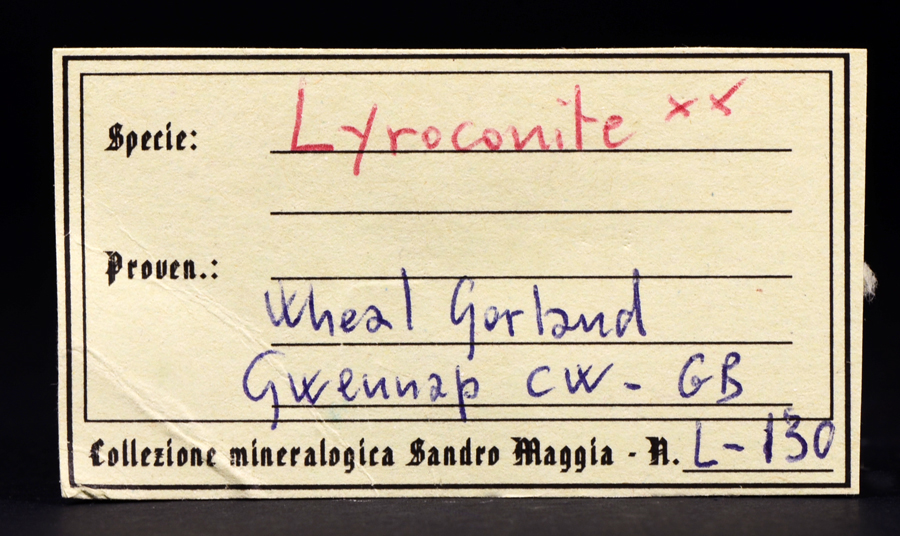 Specie: Lyroconite xx
Proven.:
Wheal Gorland
Gwennap CW - GB
Collezione mineralogica Sandro Maggia - N. L-130